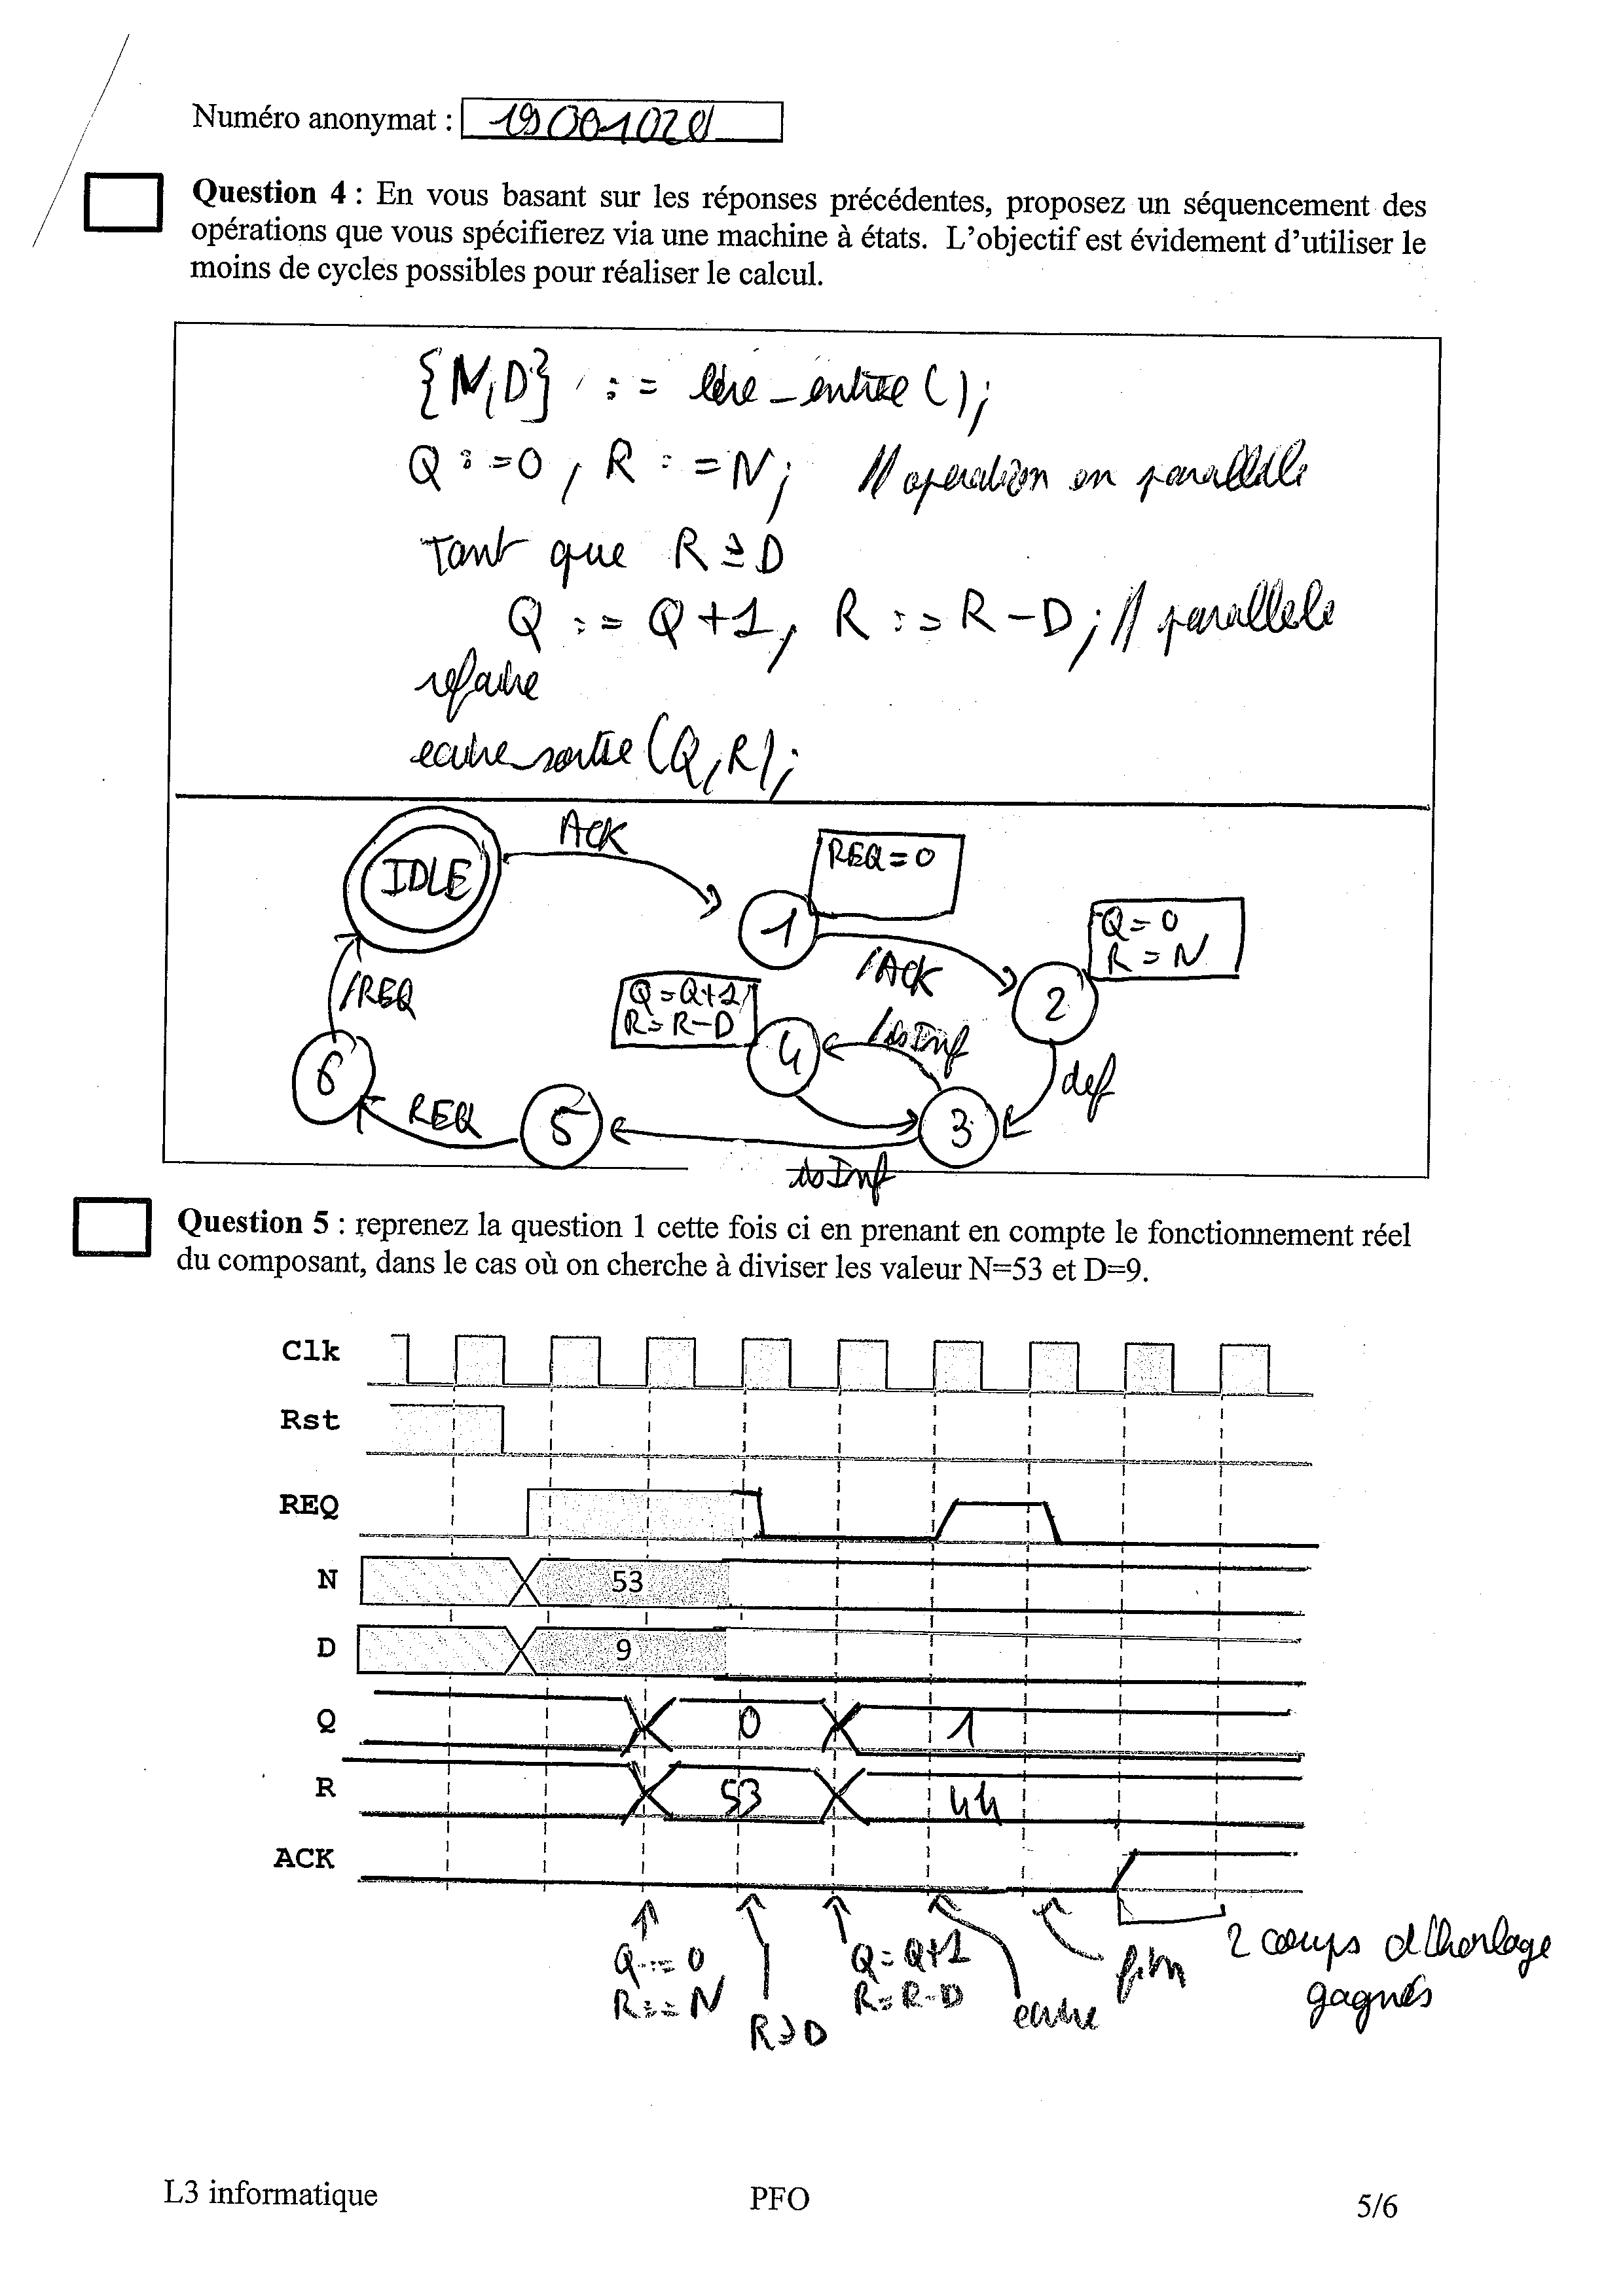 Numéro anonymat : 19001020
Question 4 : En vous basant sur les réponses précédentes, proposez un séquencement des
opérations que vous spécifierez via une machine à états. L'objectif est évidement d'utiliser le
moins de cycles possibles pour réaliser le calcul.
{N,D} := lire_entree();
Q :=0, R :=N; // operation en parallele
Tant que R ≥ D
Q := Q+1, R := R-D; // parallele
refaire
ecrire_sortie(Q,R);
IDLE
ACK
1
REQ=0
/ACK
2
Q=0
R=N
def
3
/isInf
4
Q=Q+1
R=R-D
isInf
5
REQ
6
/REQ
Question 5 : reprenez la question 1 cette fois ci en prenant en compte le fonctionnement réel
du composant, dans le cas où on cherche à diviser les valeur N=53 et D=9.
Clk
Rst
REQ
N 53
D 9
Q 0 1
R 53 44
ACK
Q:=0
R:=N
R≥D
Q=Q+1
R=R-D
ecrire
fin
2 coups d'horloge
gagnés
L3 informatique PFO 5/6